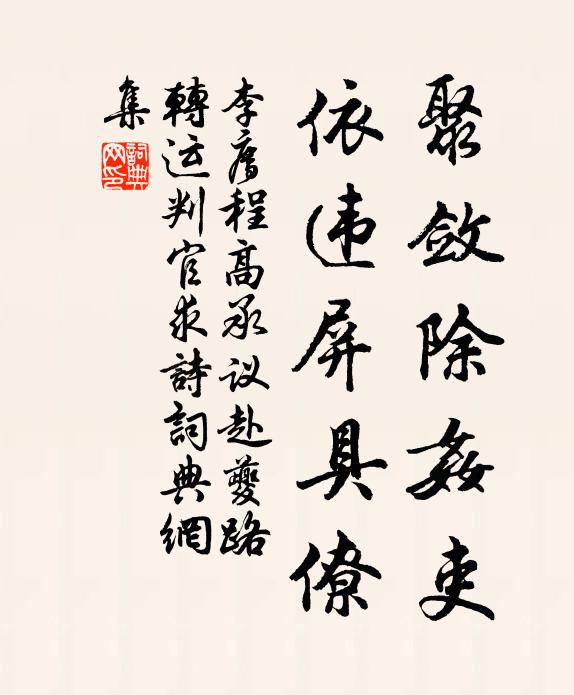 聚敛除姦吏
依违屏具僚
李廌程高承议赴夔路
轉运判官求詩詞典網
集
詞典网印